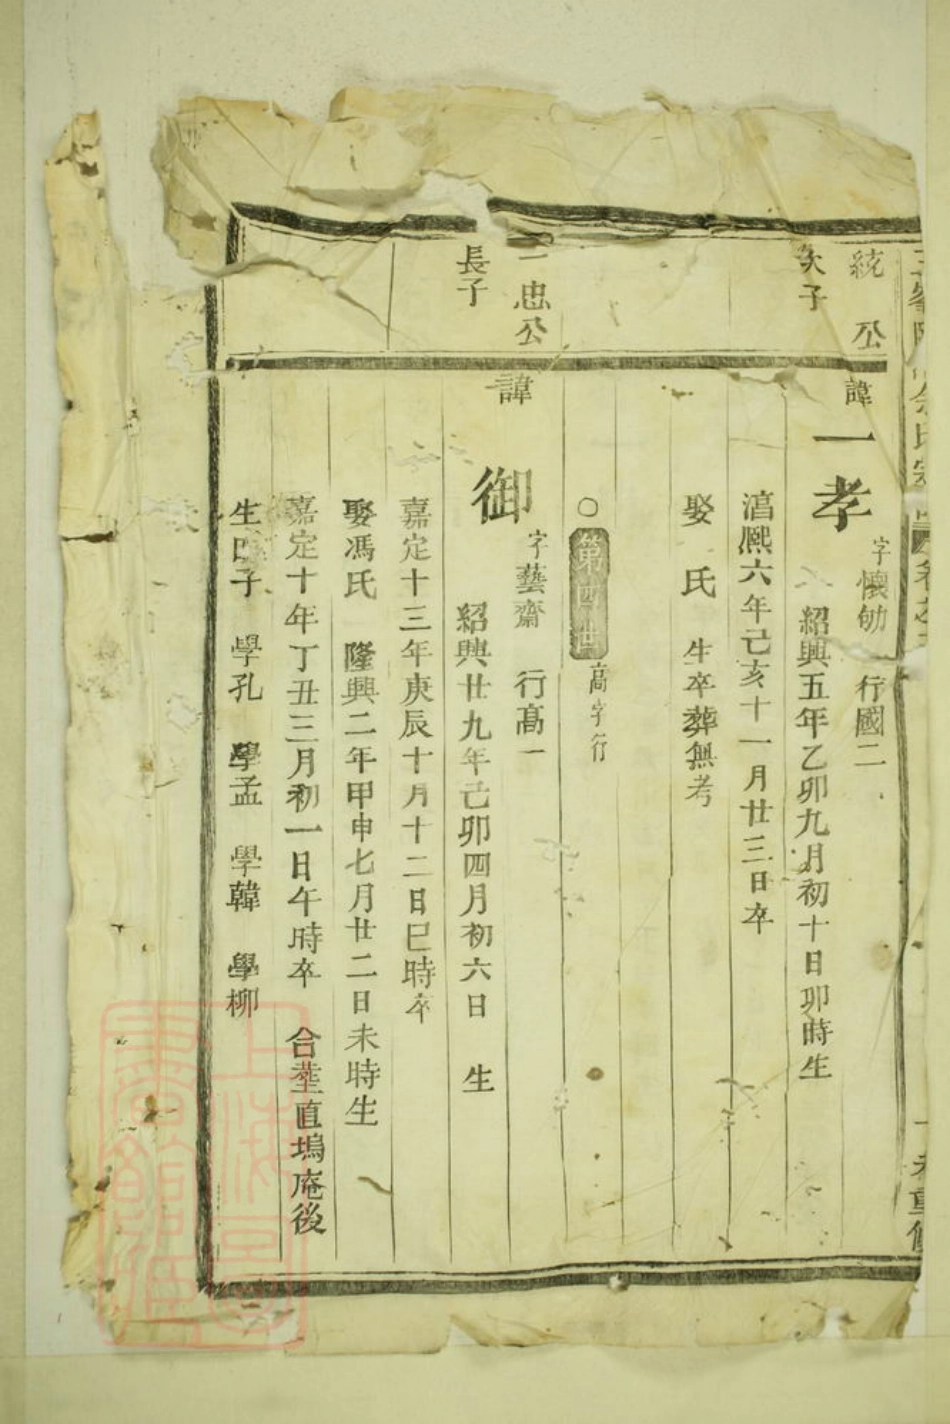 統公
次子
諱一孝
字懷劬 行國二
紹興五年乙卯九月初十日卯時生
淳熈六年己亥十一月廿三日卒
娶 氏 生卒葬無考
○第四世 高字行
一忠公
長子
諱御
字藝齋 行高一
紹興廿九年己卯四月初六日 生
嘉定十三年庚辰十月十二日巳時卒
娶馮氏 隆興二年甲申七月廿二日未時生
嘉定十年丁丑三月初一日午時卒 合塟直塢庵後
生四子 學孔 學孟 學韓 學柳